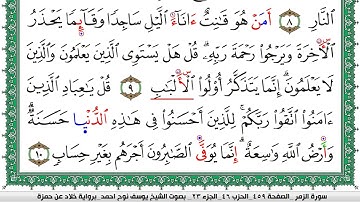 ٱلنَّارِ ۝٨ أَمَنْ هُوَ قَٰنِتٌ ءَانَآءَ ٱلَّيْلِ سَاجِدًا وَقَآئِمًا يَحْذَرُ
ٱلْأَخِرَةَ وَيَرْجُوا۟ رَحْمَةَ رَبِّهِۦ قُلْ هَلْ يَسْتَوِى ٱلَّذِينَ يَعْلَمُونَ وَٱلَّذِينَ
لَا يَعْلَمُونَ إِنَّمَا يَتَذَكَّرُ أُو۟لُوا۟ ٱلْأَلْبَٰبِ ۝٩ قُلْ يَٰعِبَادِ ٱلَّذِينَ
ءَامَنُوا۟ ٱتَّقُوا۟ رَبَّكُمْ لِلَّذِينَ أَحْسَنُوا۟ فِى هَٰذِهِ ٱلدُّنْيَا حَسَنَةٌ
وَأَرْضُ ٱللَّهِ وَٰسِعَةٌ إِنَّمَا يُوَفَّى ٱلصَّٰبِرُونَ أَجْرَهُم بِغَيْرِ حِسَابٍ ۝١٠
سورة الزمر _الصفحة ٤٥٩_الحزب ٤٦_الجزء ٢٣_ بصوت الشيخ يوسف نوح احمد_برواية خلاد عن حمزة